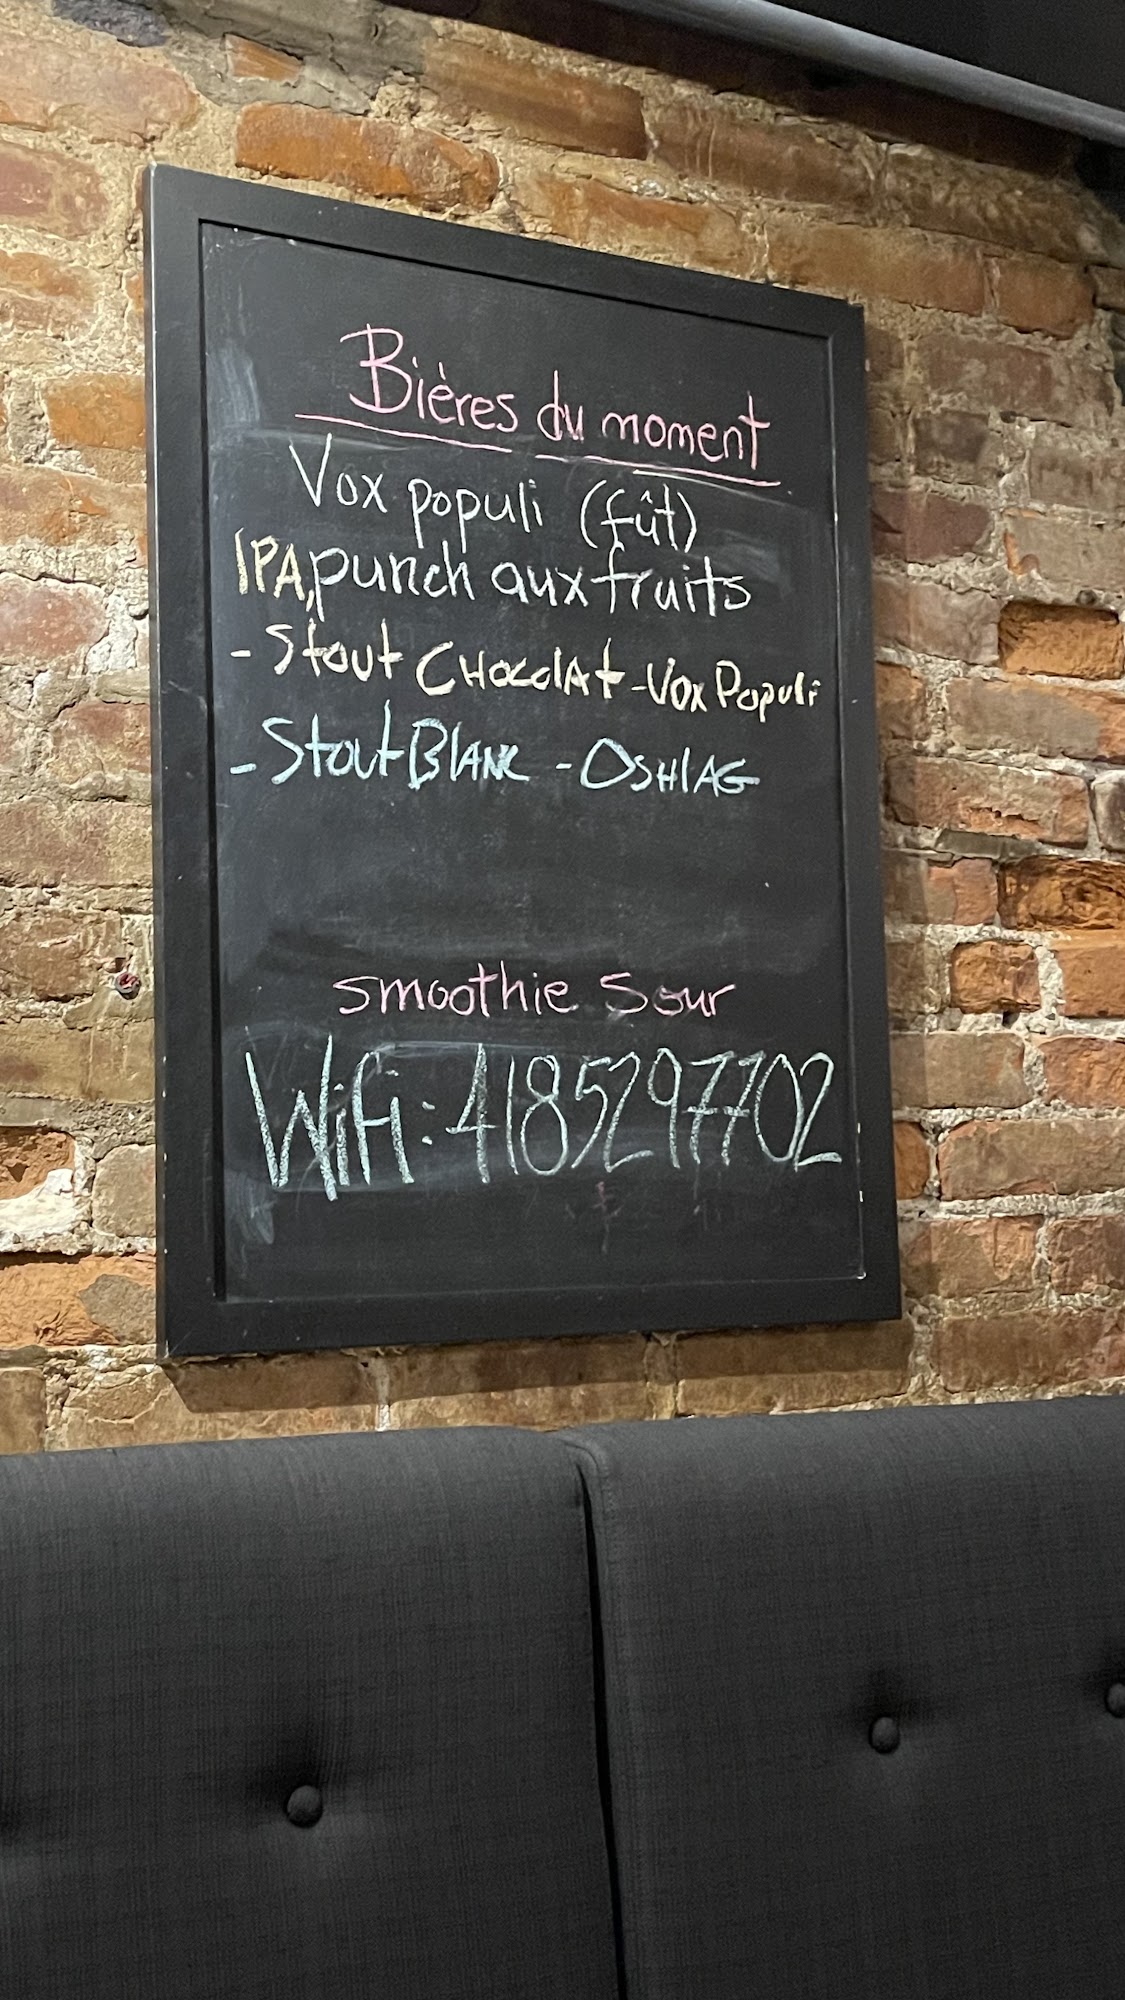 Bières du moment
Vox populi (fût)
IPA, punch aux fruits
- Stout CHocolAt - Vox Populi
- Stout BlANC - OSHlAG
smoothie Sour
Wifi: 4185297702